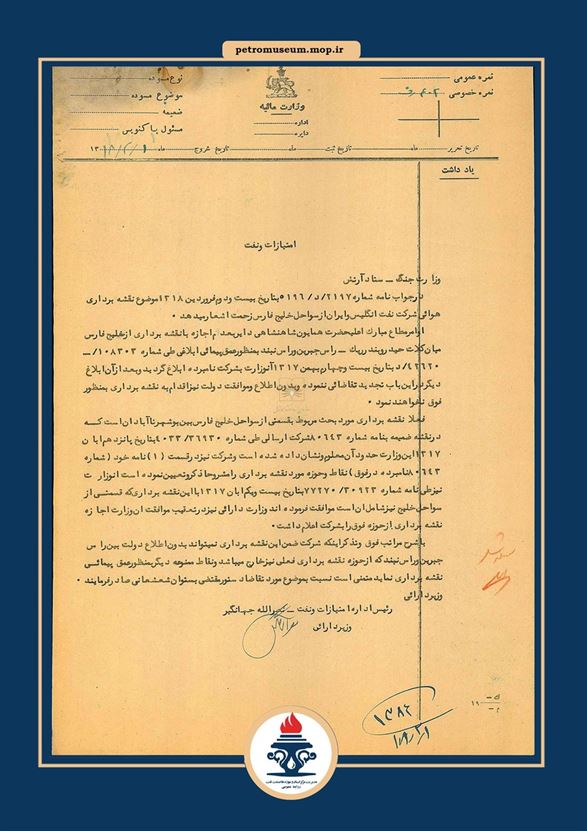 petromuseum.mop.ir
نمره عمومی
نمره خصوصی
وزارت مالیه
اداره
دایره
نوع مسوده
موضوع مسوده
ضمیمه
مسئول پاکنویس
تاریخ تحریر ماه تاریخ ثبت ماه تاریخ خروج ماه ۱۳
یاد داشت
امتیازات ونفت
وزارت جنگ ــ ستاد آرتش
درجواب نامه شماره ۲۱۹۷/د/۵۱۹۶ بتاریخ بیست ودوم فروردین ۱۳۱۸ موضوع نقشه برداری
هوائی شرکت نفت انگلیس وایران از سواحل خلیج فارس زحمت اشعار میدهد ۰
اوامر مطاع مبارك اعلیحضرت همایون شاهنشاهی دایر بعدم اجازه با نقشه برداری از خلیج فارس
میان کلات حیدر وبندر ریگ ــ راس جبرین وراس نبند بمنظور عمق پیمائی ابلاغی طی شماره ۱۰۸۳۰۳/ــ
د/۴۲۶۲۰ بتاریخ بیست وچهارم بهمن ۱۳۱۷ آنوزارت بشرکت نامبرده ابلاغ گردید وبعد از آن ابلاغ
دیگر در این باب تجدید تقاضائی ننموده وبدون اطلاع وموافقت دولت نیز اقدام به نقشه برداری بمنظور
فوق نخواهند نمود ۰
فعلا نقشه برداری مورد بحث مربوط بقسمتی از سواحل خلیج فارس بین بوشهر تا آبادان است کــه
در نقشه ضمیمه بنامه شماره ۸۰۶۴۳ شرکت ارسالی طی شماره ۴۰۳۳/۳۶۹۳۰ بتاریخ پانزدهم ابان
۱۳۱۷ این وزارت حدود آن معلوم ونشان داده شده است وشرکت نیز در قسمت (۱) نامه خود (شماره
۸۰۶۴۳ نامبرده درفوق) نقاط وحوزه مورد نقشه برداری را مشروحا ذکر وتعیین نموده است انوزارت
نیز طی نامه شماره ۷۷۲۷۰/۳۰۹۲۳ بتاریخ بیست ویکم ابان ۱۳۱۷ با این نقشه برداری که قسمتی از
سواحل خلیج نیز شامل ان است موافقت فرموده اند وزارت دارائی نیز در تعقیب موافقت ان وزارت اجازه
نقشه برداری از حوزه فوق را بشرکت اعلام داشت ۰
با شرح مراتب فوق وتذکر اینکه شرکت ضمن این نقشه برداری نمیتواند بدون اطلاع دولت بین راس
جبرین وراس نبند که از حوزه نقشه برداری فعلی نیز خارج میباشد ونقاط ممنوعه دیگر بمنظور عمق پیمائی
نقشه برداری نماید متمنی است نسبت بموضوع مورد تقاضا دستور مقتضی بستوان شعشعانی صادر فرمایند ۰
وزیر دارائی
رئیس اداره امتیازات ونفت ــ نصرالله جهانگیر
وزیر دارائی
۱۳۸۲